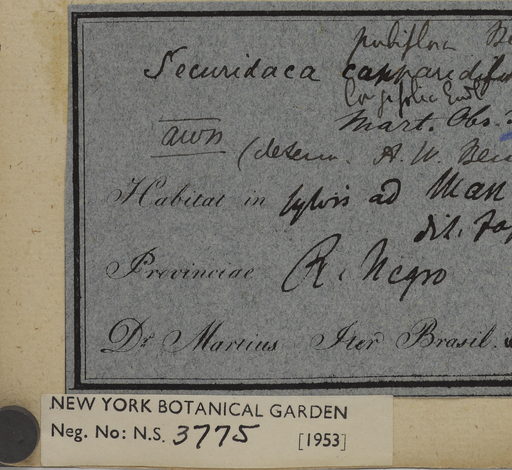 pubiflora Be
Securidaca capparidifo
longifolia
Mart. Obs.
AWB
(determ. A. W. Ben
Habitat in sylvis ad Man
dit. Jap
Provinciae R. Negro
Dr. Martius Iter Brasil.
NEW YORK BOTANICAL GARDEN
Neg. No: N.S. 3775 [1953]